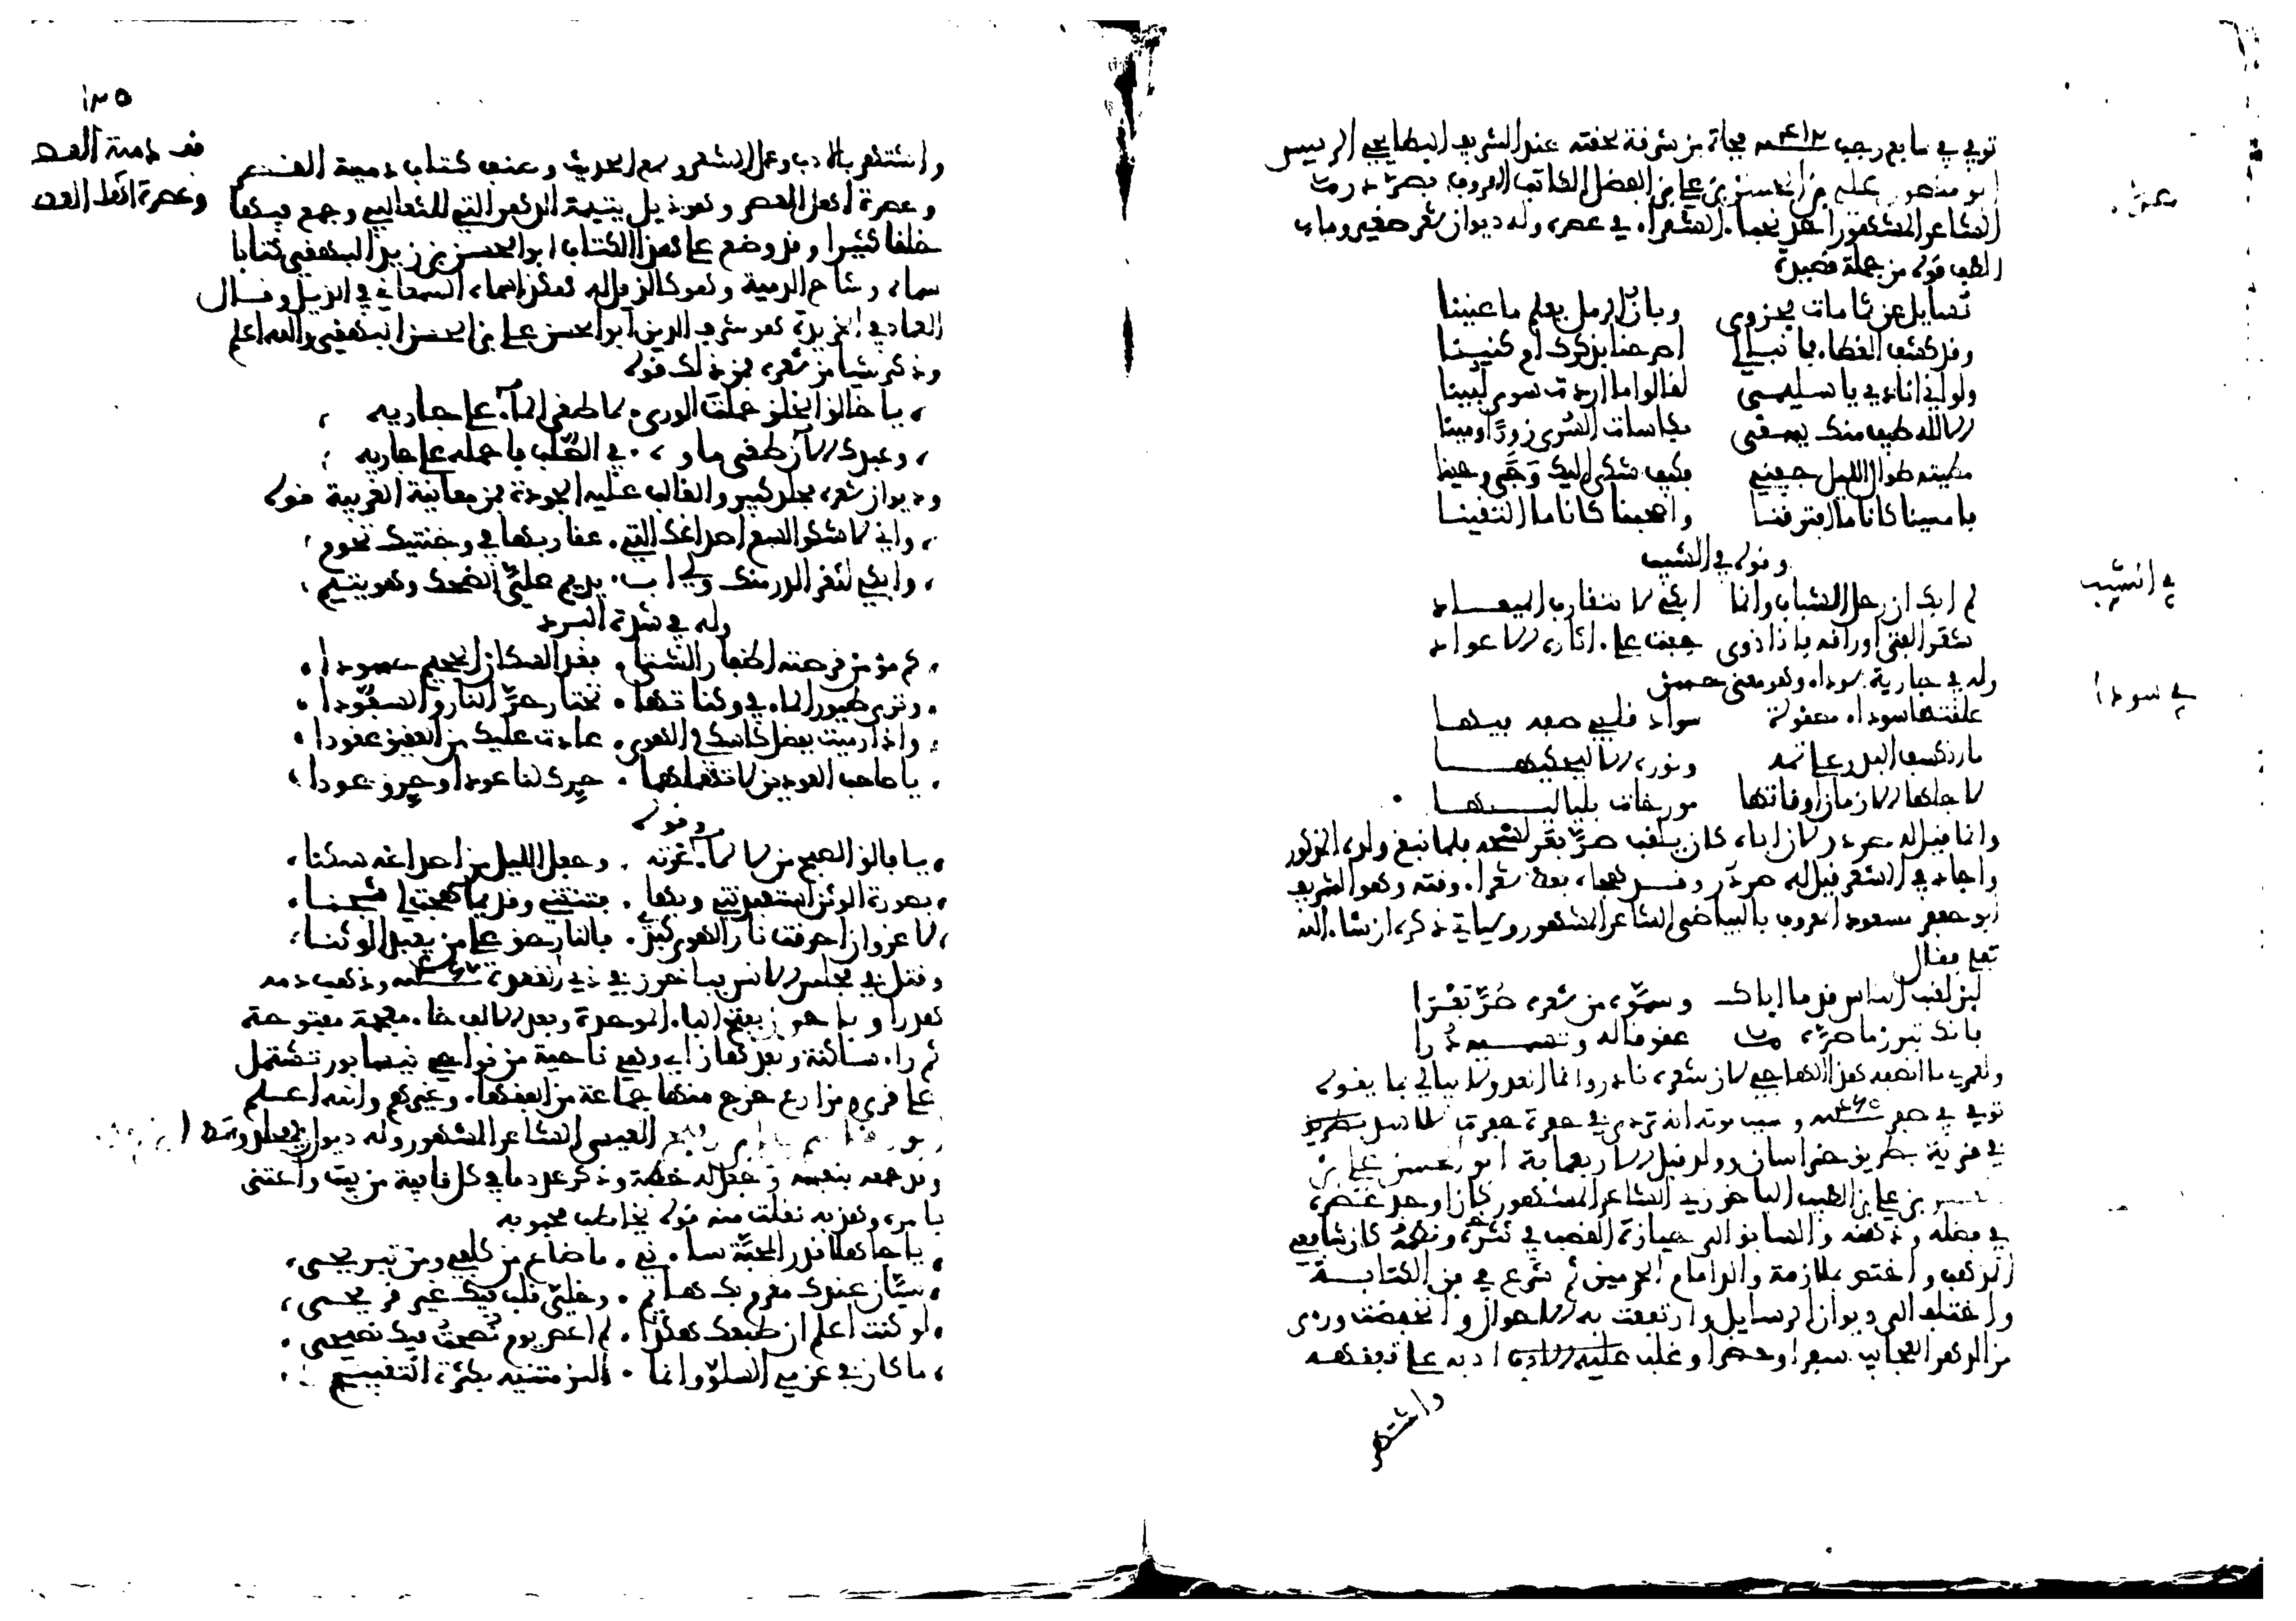 توفي في سابع رجب سنة ٤١٢ فجاة من شرفة لحقته عند الشريف البطايحي الرييس
ابو منصور علي بن الحسن بن علي بن الفضل الكاتب المعروف بصر در
الشاعر المشهور احد نجباء الشعراء في عصره وله ديوان شعر صغير وما
الطف قوله من جملة قصيدة
تسايل عن ثامات بحزوى وبان الرمل يعلم ما عنينا
وقد كشف الغطاء فما نبالي اصرحنا بذكرك ام كنينا
ولو اني انادي يا سليمى لقالوا ما اردت سوى لبينا
الا لله طيف منك يسقي بكاسات السرى زورا ومينا
مطيته طوال الليل جفني فكيف شكى اليك وجى واينا
فامسينا كانا ما افترقنا واصبحنا كانا ما التقينا
وقوله في الشيب
في الشيب
لم ابك ان رحل الشباب وانما ابكي لان يتقارب الميعاد
شعر الفتى اوراقه فاذا ذوى جفت على اثاره الاعواد
وله في جارية سوداء وهو معنى حسن
في سودا
علقتها سوداء مصقولة سواد قلبي صفة فيها
ما انكسف البدر على تمه ونوره الا ليحكيها
لاجلها الازمان اوقاتها مورخات بلياليها
وانما قيل له صردر لان اباه كان يلقب صر بعر لشحه فلما نبغ ولده المذكور
واجاد في الشعر قيل له صردر وقد هجاه بعض شعراء وقته وهو الشريف
ابو جعفر مسعود المعروف بالبياضي الشاعر المشهور وسياتي ذكره ان شاء الله
تعلى فقال
لين لقب الناس قدما اباك وسموه من شعره صر بعرا
فانك تنثر ما صره عقوقا له وتسميه درا
ولعمري ما انصفه هذا الهاجي لان شعره نادر وانما العدو لا يبالي بما يقول
توفي في صفر سنة ٤٦٥ وسبب موته انه تردى في حفرة حفرت للاسد بطريق
في قرية بطريق خراسان وولد قبل الاربعماية ابو الحسن علي بن
بن علي بن الطيب الباخرزي الشاعر المشهور كان اوحد عصره
في فضله وذهنه والسابق الى حيازة القصب في نثره ونظمه كان شافعي
المذهب واختص بملازمة والد امام الحرمين ثم شرع في فن الكتابة
واختلف الى ديوان الرسايل وارتفعت به الاحوال وانخفضت وراى
من الدهر العجايب سفرا وحضرا وغلب عليه الادب ادبه على فقهه
واشتهر
١٣٥
واشتهر بالادب وعمل الشعر وسمع الحديث وصنف كتاب دمية القصر
وعصرة اهل العصر وهو ذيل يتيمة الدهر التي للثعالبي وجمع فيها
خلقا كثيرا وقد وضع على هذا الكتاب ابو الحسن بن زيد البيهقي كتابا
سماه وشاح الدمية وهو كالذيل له هكذا سماه السمعاني في الذيل وقال
العماد في الخريدة هو شرف الدين ابو الحسن علي بن الحسن البيهقي والله اعلم
وذكر شيا من شعره فمن ذلك قوله
يا خالق الخلق حملت الورى لما طغى الماء على جاريه
وعبدك الان طغى ماوه في الصلب فاحمله على جاريه
وديوان شعره مجلد كبير والغالب عليه الجودة فمن معانيه الغريبة قوله
واني لاشكو السع اصداغك التي عقاربها في وجنتيك تحوم
وابكي لثغر الدر منك ولي اب يديم علي الضحك وهو يتيم
وله في شدة البرد
كم مومن قرصته اظفار الشتا فغدا لسكان الجحيم حسودا
وترى طيور الماء في وكناتها تختار حر النار والسفودا
واذا رميت بفضل كاسك في الهوى عادت عليك من العقيق عقودا
يا صاحب العودين لا تهملهما حرك لنا عودا وحرق عودا
وقوله
يا فالق الصبح من لالاء غرته وجعل الليل من اصداغه سكنا
بصورة الوثن استعبدتني وبها فتنتني وقديما هجت لي شجنا
لا غرو ان احرقت نار الهوى كبدي فالنار حق على من يعبد الوثنا
وقتل في مجلس الانس بباخرز في ذي القعدة سنة ٤٦٧ وذهب دمه
هدرا وباخرز بفتح الباء الموحدة وبعد الالف خاء معجمة مفتوحة
ثم راء ساكنة وبعدها زاي وهي ناحية من نواحي نيسابور تشتمل
على قرى ومزارع خرج منها جماعة من الفضلاء وغيرهم والله اعلم
العبسي الشاعر المشهور وله ديوان
وقد جمعه بنفسه وجعل له خطبة وذكر عدد ما في كل قافية من بيت واعتنى
بامره وهذبه نقلت منه قوله يخاطب محبوبه
يا جاهلا قدر المحبة ساءني ما ضاع من كلفي ومن تبريحي
سيان عندك مغرم بك هايم وخلي قلب فيك غير قريح
لو كنت اعلم ان طبعك هكذا لم اعص يوم نصحت فيك نصيحي
ما كان في عزمي السلو وانما الزمتنيه بكثرة التقبيح